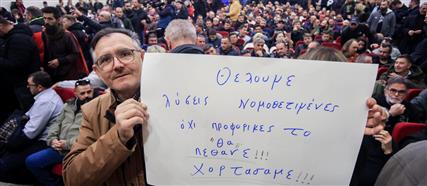 Θελουμε
λύσεις νομοθετιμένες
όχι προφορικες το
"θα
πεθανε"!!!
Χορτασαμε!!!